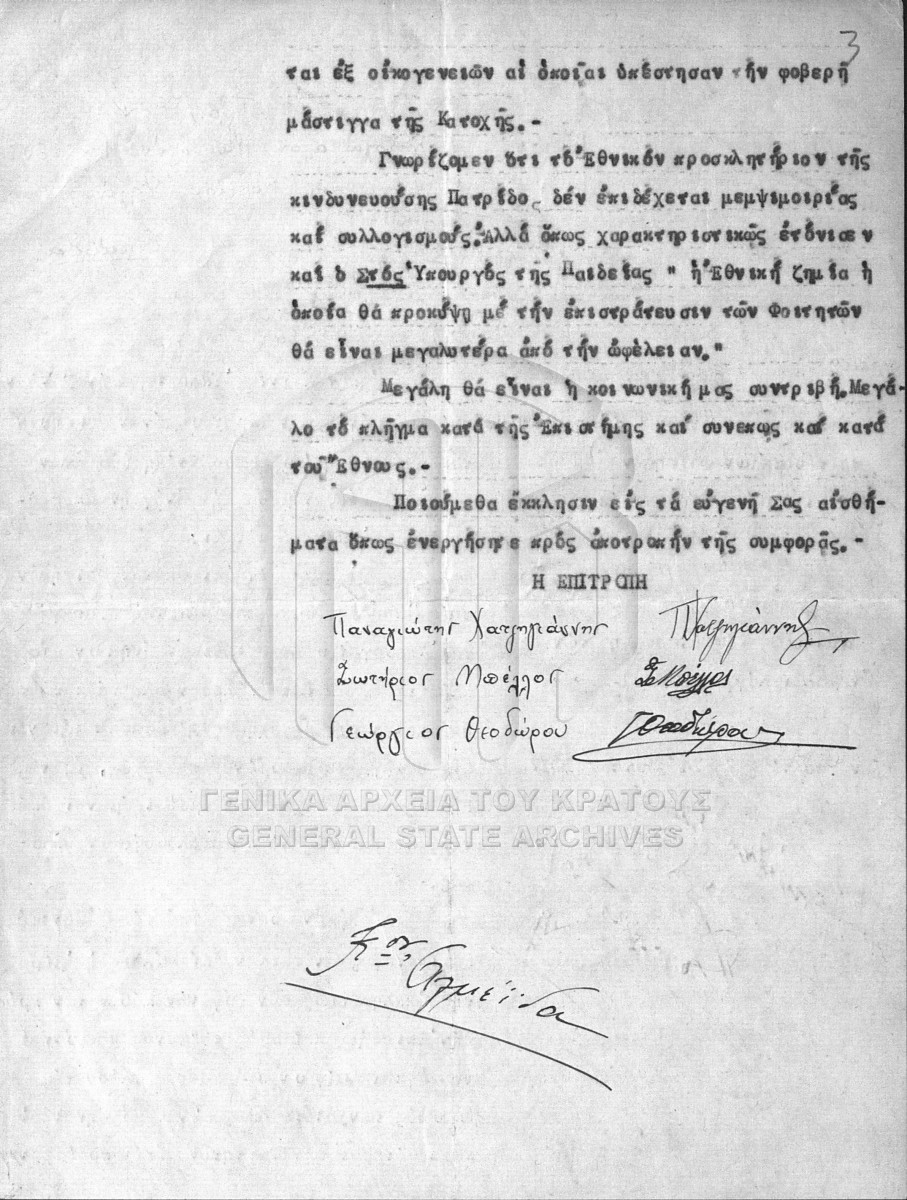 3
ται ἐξ οἰκογενειῶν αἱ ὁποῖαι ὑπέστησαν τήν φοβερή
μάστιγγα τῆς Κατοχῆς.-
Γνωρίζομεν ὅτι τό Ἐθνικόν προσκλητήριον τῆς
κινδυνευούσης Πατρίδος δέν ἐπιδέχεται μεμψιμοιρίας
καί συλλογισμούς. Ἀλλά ὅπως χαρακτηριστικῶς ἐτόνισεν
καί ὁ Στός Ὑπουργός τῆς Παιδείας " ἡ Ἐθνική ζημία ἡ
ὁποία θά προκύψη μέ τήν ἐπιστράτευσιν τῶν Φοιτητῶν
θά εἶναι μεγαλυτέρα ἀπό τήν ὠφέλειαν."
Μεγάλη θά εἶναι ἡ κοινωνική μας συντριβή. Μεγά-
λο τό πλῆγμα κατά τῆς Ἐπιστήμης καί συνεπῶς καί κατά
τοῦ Ἔθνους.-
Ποιούμεθα ἔκκλησιν εἰς τά εὐγενῆ Σας αἰσθή-
ματα ὅπως ἐνεργήσητε πρός ἀποτροπήν τῆς συμφορᾶς.-
Η ΕΠΙΤΡΟΠΗ
Παναγιώτης Χατζηγιάννης Π Χατζηγιάννης
Σωτήριος Μπέλλος Σ Μπέλλος
Γεώργιος Θεοδώρου Γ Θεοδώρου
ΓΕΝΙΚΑ ΑΡΧΕΙΑ ΤΟΥ ΚΡΑΤΟΥΣ
GENERAL STATE ARCHIVES